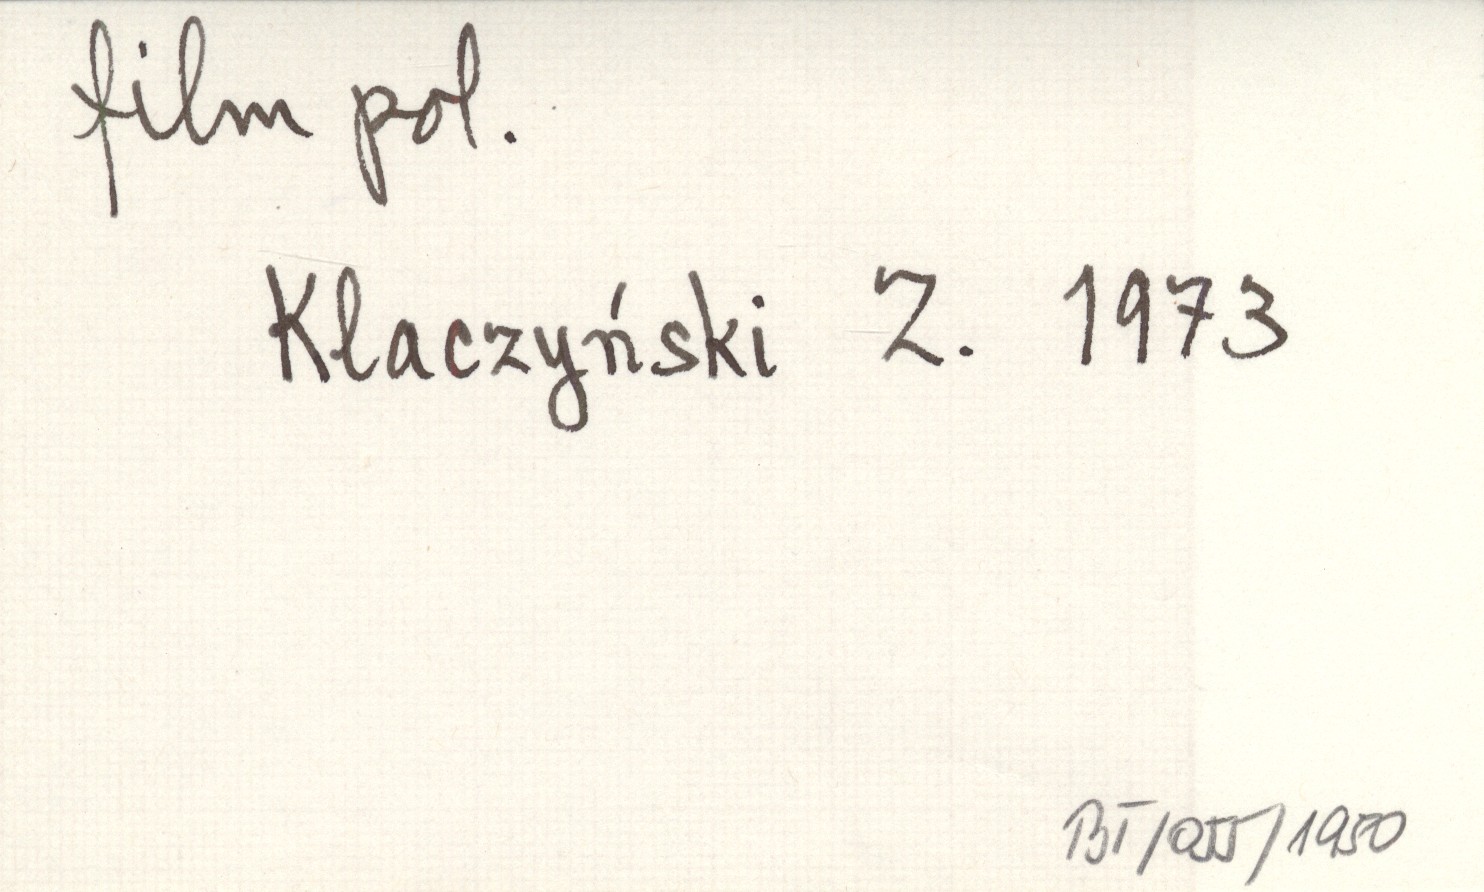 film pol.
Kłaczyński Z. 1973
BT/055/1950